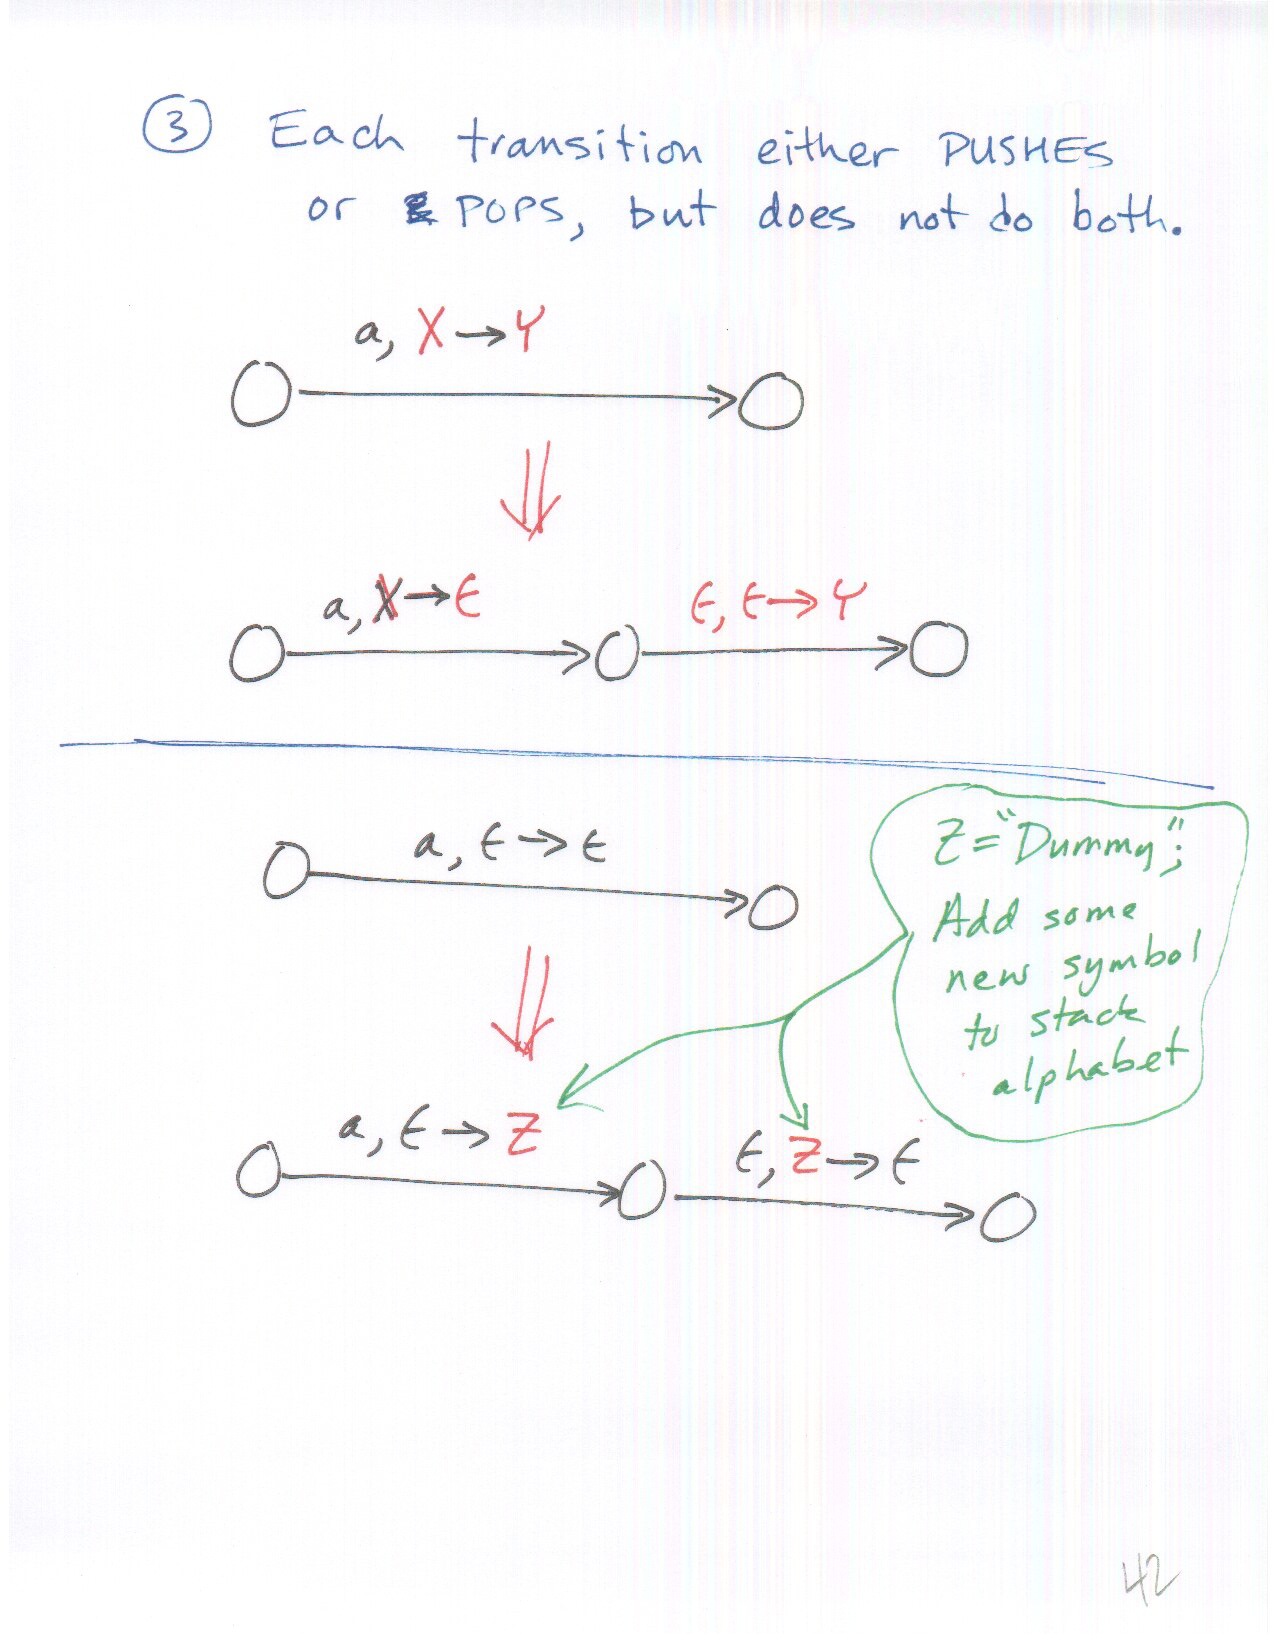 3 Each transition either PUSHES
or POPS, but does not do both.
a, X → Y
a, X → ε
ε, ε → Y
a, ε → ε
Z = "Dummy";
Add some
new symbol
to stack
alphabet
a, ε → Z
ε, Z → ε
42